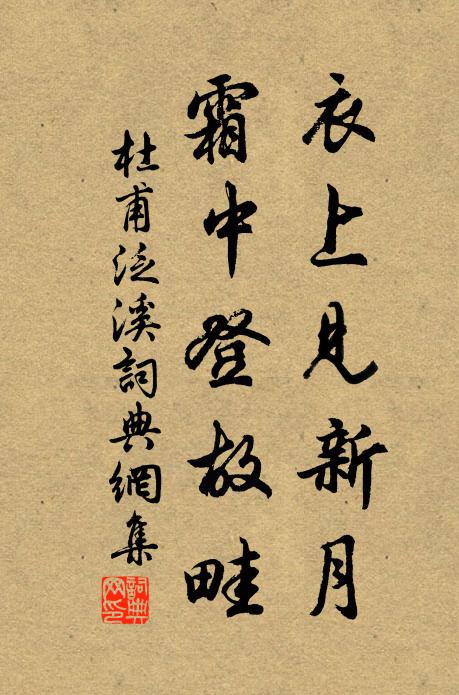 衣上見新月
霜中登故畦
杜甫泛溪詞典網集
詞典網印